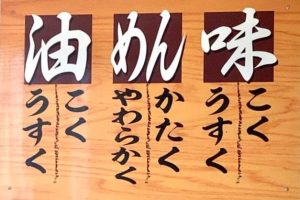 味
こく
うすく
めん
かたく
やわらかく
油
こく
うすく